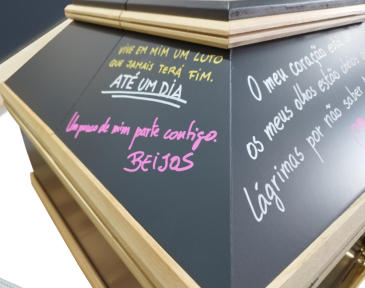 VIVE EM MIM UM LUTO
QUE JAMAIS TERÁ FIM.
ATÉ UM DIA
Um pouco de mim parte contigo.
BEIJOS
O meu coração está
os meus olhos estão
lágrimas por não saber